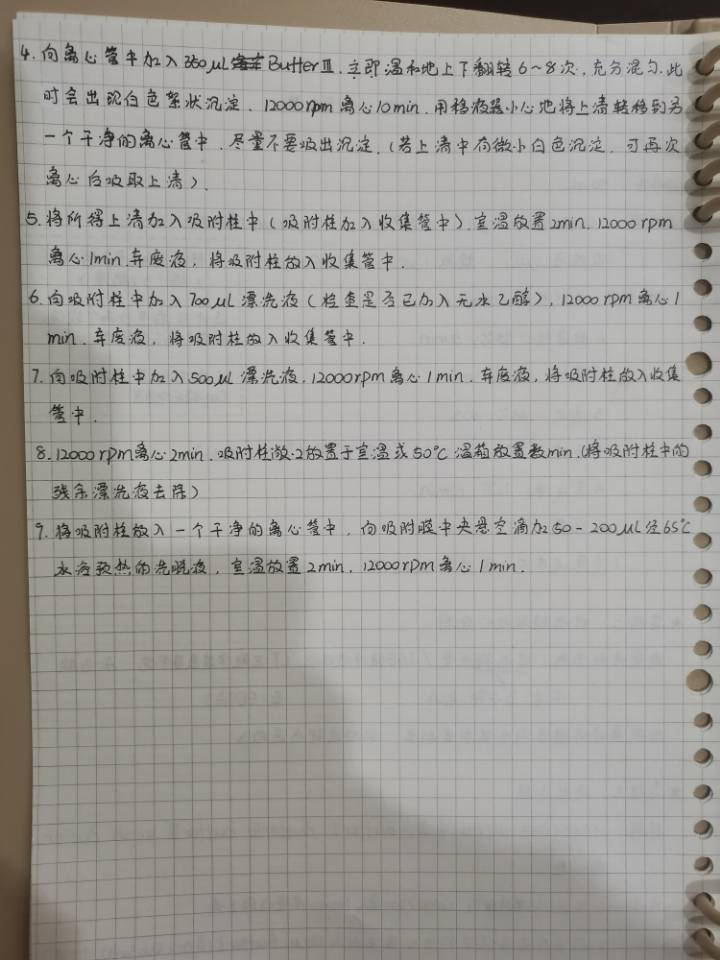 4. 向离心管中加入350μL Buffer Ⅲ, 立即温和地上下翻转6~8次, 充分混匀. 此
时会出现白色絮状沉淀. 12000rpm 离心10min. 用移液器小心地将上清转移到另
一个干净的离心管中. 尽量不要吸出沉淀. (若上清中有微小白色沉淀. 可再次
离心后吸取上清).
5. 将所得上清加入吸附柱中 (吸附柱加入收集管中). 室温放置2min. 12000rpm
离心1min. 弃废液, 将吸附柱放入收集管中.
6. 向吸附柱中加入700μL 漂洗液 (检查是否已加入无水乙醇), 12000rpm 离心1
min. 弃废液, 将吸附柱放入收集管中.
7. 向吸附柱中加入500μL 漂洗液, 12000rpm 离心1min. 弃废液, 将吸附柱放入收集
管中.
8. 12000rpm离心2min. 吸附柱敞口放置于室温或50℃ 温箱放置数min. (将吸附柱中的
残余漂洗液去除)
9. 将吸附柱放入一个干净的离心管中, 向吸附膜中央悬空滴加50-200μL经65℃
水浴预热的洗脱液, 室温放置2min. 12000rpm离心1min.